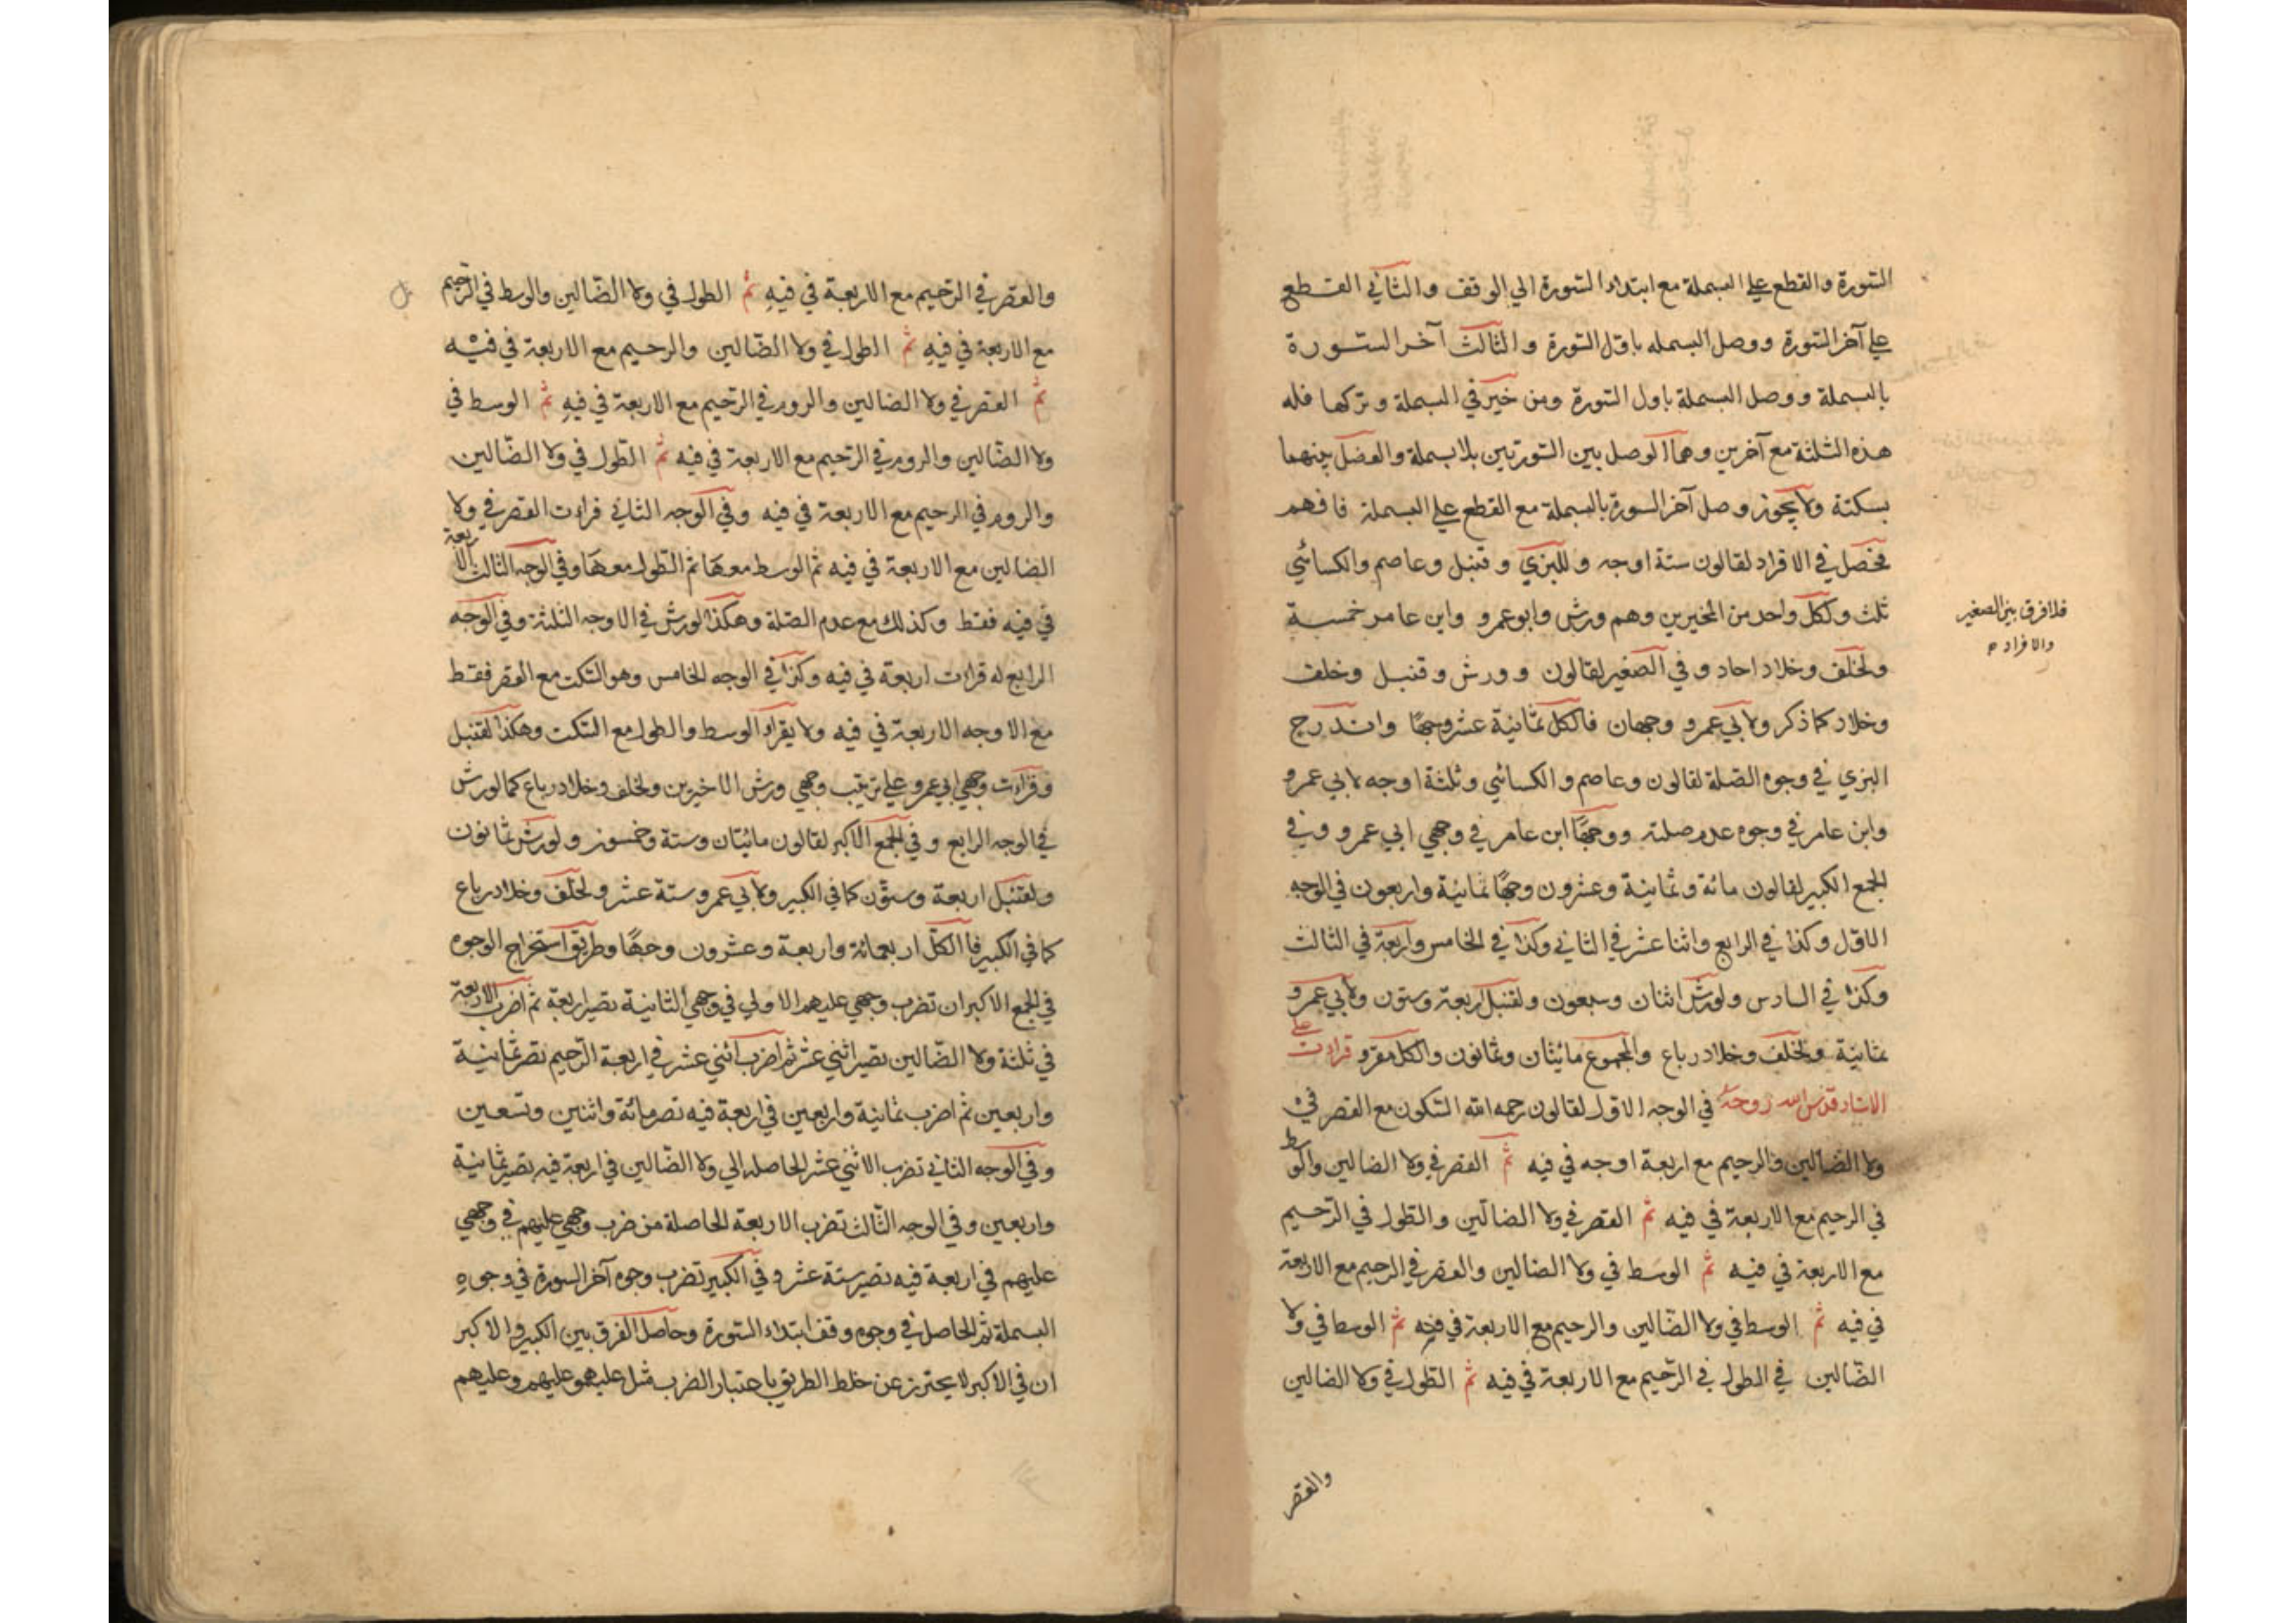 السّورة والقطع علي البسملة مع ابتداء السّورة الي الوقف والثاني القطع
علي آخر السّورة ووصل البسمله باوّل السّورة والثالث آخر السّورة
بالبسملة ووصل البسملة باول السّورة ومن خيّر في البسملة وتركها فله
هذه الثلثة مع آخرين وهما الوصل بين السّورتين بلا بسملة والفصل بينهما
بسكتة ولا يجوز وصل آخر السورة بالبسملة مع القطع علي البسملة فافهم
فحصل في الافراد لقالون ستة اوجه وللبزي وقنبل وعاصم والكسائي
ثلث ولكل واحد من المخيرين وهم ورش وابو عمرو وابن عامر خمسة
فلا فرق بين الصغير
والافراد م
ولخلف وخلاد احاد وفي الصغير لقالون وورش وقنبل وخلف
وخلاد كما ذكر ولابي عمرو وجهان فالكل ثمانية عشر وجهًا واندرج
البزي في وجوه الصّلة لقالون وعاصم والكسائي وثلثة اوجه لابي عمرو
وابن عامر في وجوه عدم صلته ووجهًا ابن عامر في وجهي ابي عمرو وفي
الجمع الكبير لقالون مائة وثمانية وعشرون وجهًا ثمانية واربعون في الوجه
الاوّل وكذا في الرابع واثنا عشر في الثاني وكذا في الخامس واربعة في الثالث
وكذا في السادس ولورش اثنان وسبعون ولقنبل اربعة وستون ولابي عمرو
ثمانية ولخلف وخلاد رباع والمجموع مائتان وثمانون والكل مقرو قراءت علي
الاستاد قدّس الله روحه في الوجه الاوّل لقالون رحمه الله السّكون مع القصر في
ولا الضالين والرحيم مع اربعة اوجه في فيه ثم القصر في ولا الضالين والوسط
في الرحيم مع الاربعة في فيه ثم القصر في ولا الضالّين والطّول في الرّحيم
مع الاربعة في فيه ثم الوسَط في ولا الضالين والقصر في الرحيم مع الاربعة
في فيه ثم الوسط في ولا الضّالين والرحيم مع الاربعة في فيه ثم الوسط في ولا
الضّالين في الطول في الرّحيم مع الاربعة في فيه ثم الطّول في ولا الضالين
والقصر
والقصر في الرّحيم مع الاربعة في فيهِ ثم الطول في ولا الضّالين والوسط في الرّحيم
مع الاربعة في فيهِ ثم الطول في ولا الضّالين والرحيم مع الاربعة في فيه
ثم القصر في ولا الضالين والروم في الرّحيم مع الاربعة في فيهِ ثم الوسط في
ولا الضّالين والروم في الرحيم مع الاربعة في فيه ثم الطّول في ولا الضّالين
والروم في الرحيم مع الاربعة في فيه وفي الوجه الثاني قراءت القصر في ولا
الضالين مع الاربعة في فيه ثم الوسط معهَا ثم الطّول معهَا وفي الوجه الثالث الاربعة
في فيه فقط وكذلك مع عدم الصّلة وهكذا لورش في الاوجه الثلثة وفي الوجه
الرابع له قراءت اربعة في فيه وكذا في الوجه الخامس وهو السّكت مع القصر فقط
مع الاوجه الاربعة في فيه ولا يقراء الوسط والطول مع السّكت وهكذا لقنبل
وقراءت وجهي ابي عمرو علي ترتيب وجهي ورش الاخيرين ولخلف وخلاد رباع كما لورش
في الوجه الرابع وفي الجمع الاكبر لقالون مائتان وستة وخمسون ولورش ثمانون
ولقنبل اربعة وستّون كما في الكبير ولابي عمرو ستة عشر ولخلف وخلاد رباع
كما في الكبير فالكل اربعمائة واربعة وعشرون وجهًا وطريق استخراج الوجوه
في الجمع الاكبر ان تضرب وجهي عليهم الاولي في وجهي الثانية تصير اربعة ثم اضرب الاربعة
في ثلثة ولا الضّالين تصير اثني عشر ثم اضرب اثني عشر في اربعة الرّحيم تصر ثمانية
واربعين ثم اضرب ثمانية واربعين في اربعة فيه تصر مائة واثنين وتسعين
وفي الوجه الثاني تضرب الاثني عشر الحاصله الي ولا الضّالين في اربعة فيه تصير ثمانية
واربعين وفي الوجه الثّالث تضرب الاربعة الحاصلة من ضرب وجهي عليهم في وجهي
عليهم في اربعة فيه تصير ستة عشر وفي الكبير تضرب وجوه آخر السورة في وجوهِ
البسملة ثم الحاصل في وجوه وقف ابتداء السّورة وحاصل الفرق بين الكبير والاكبر
ان في الاكبر لا يحترز عن خلط الطريق باعتبار الضرب مثل عليهمو عليهم وعليهم